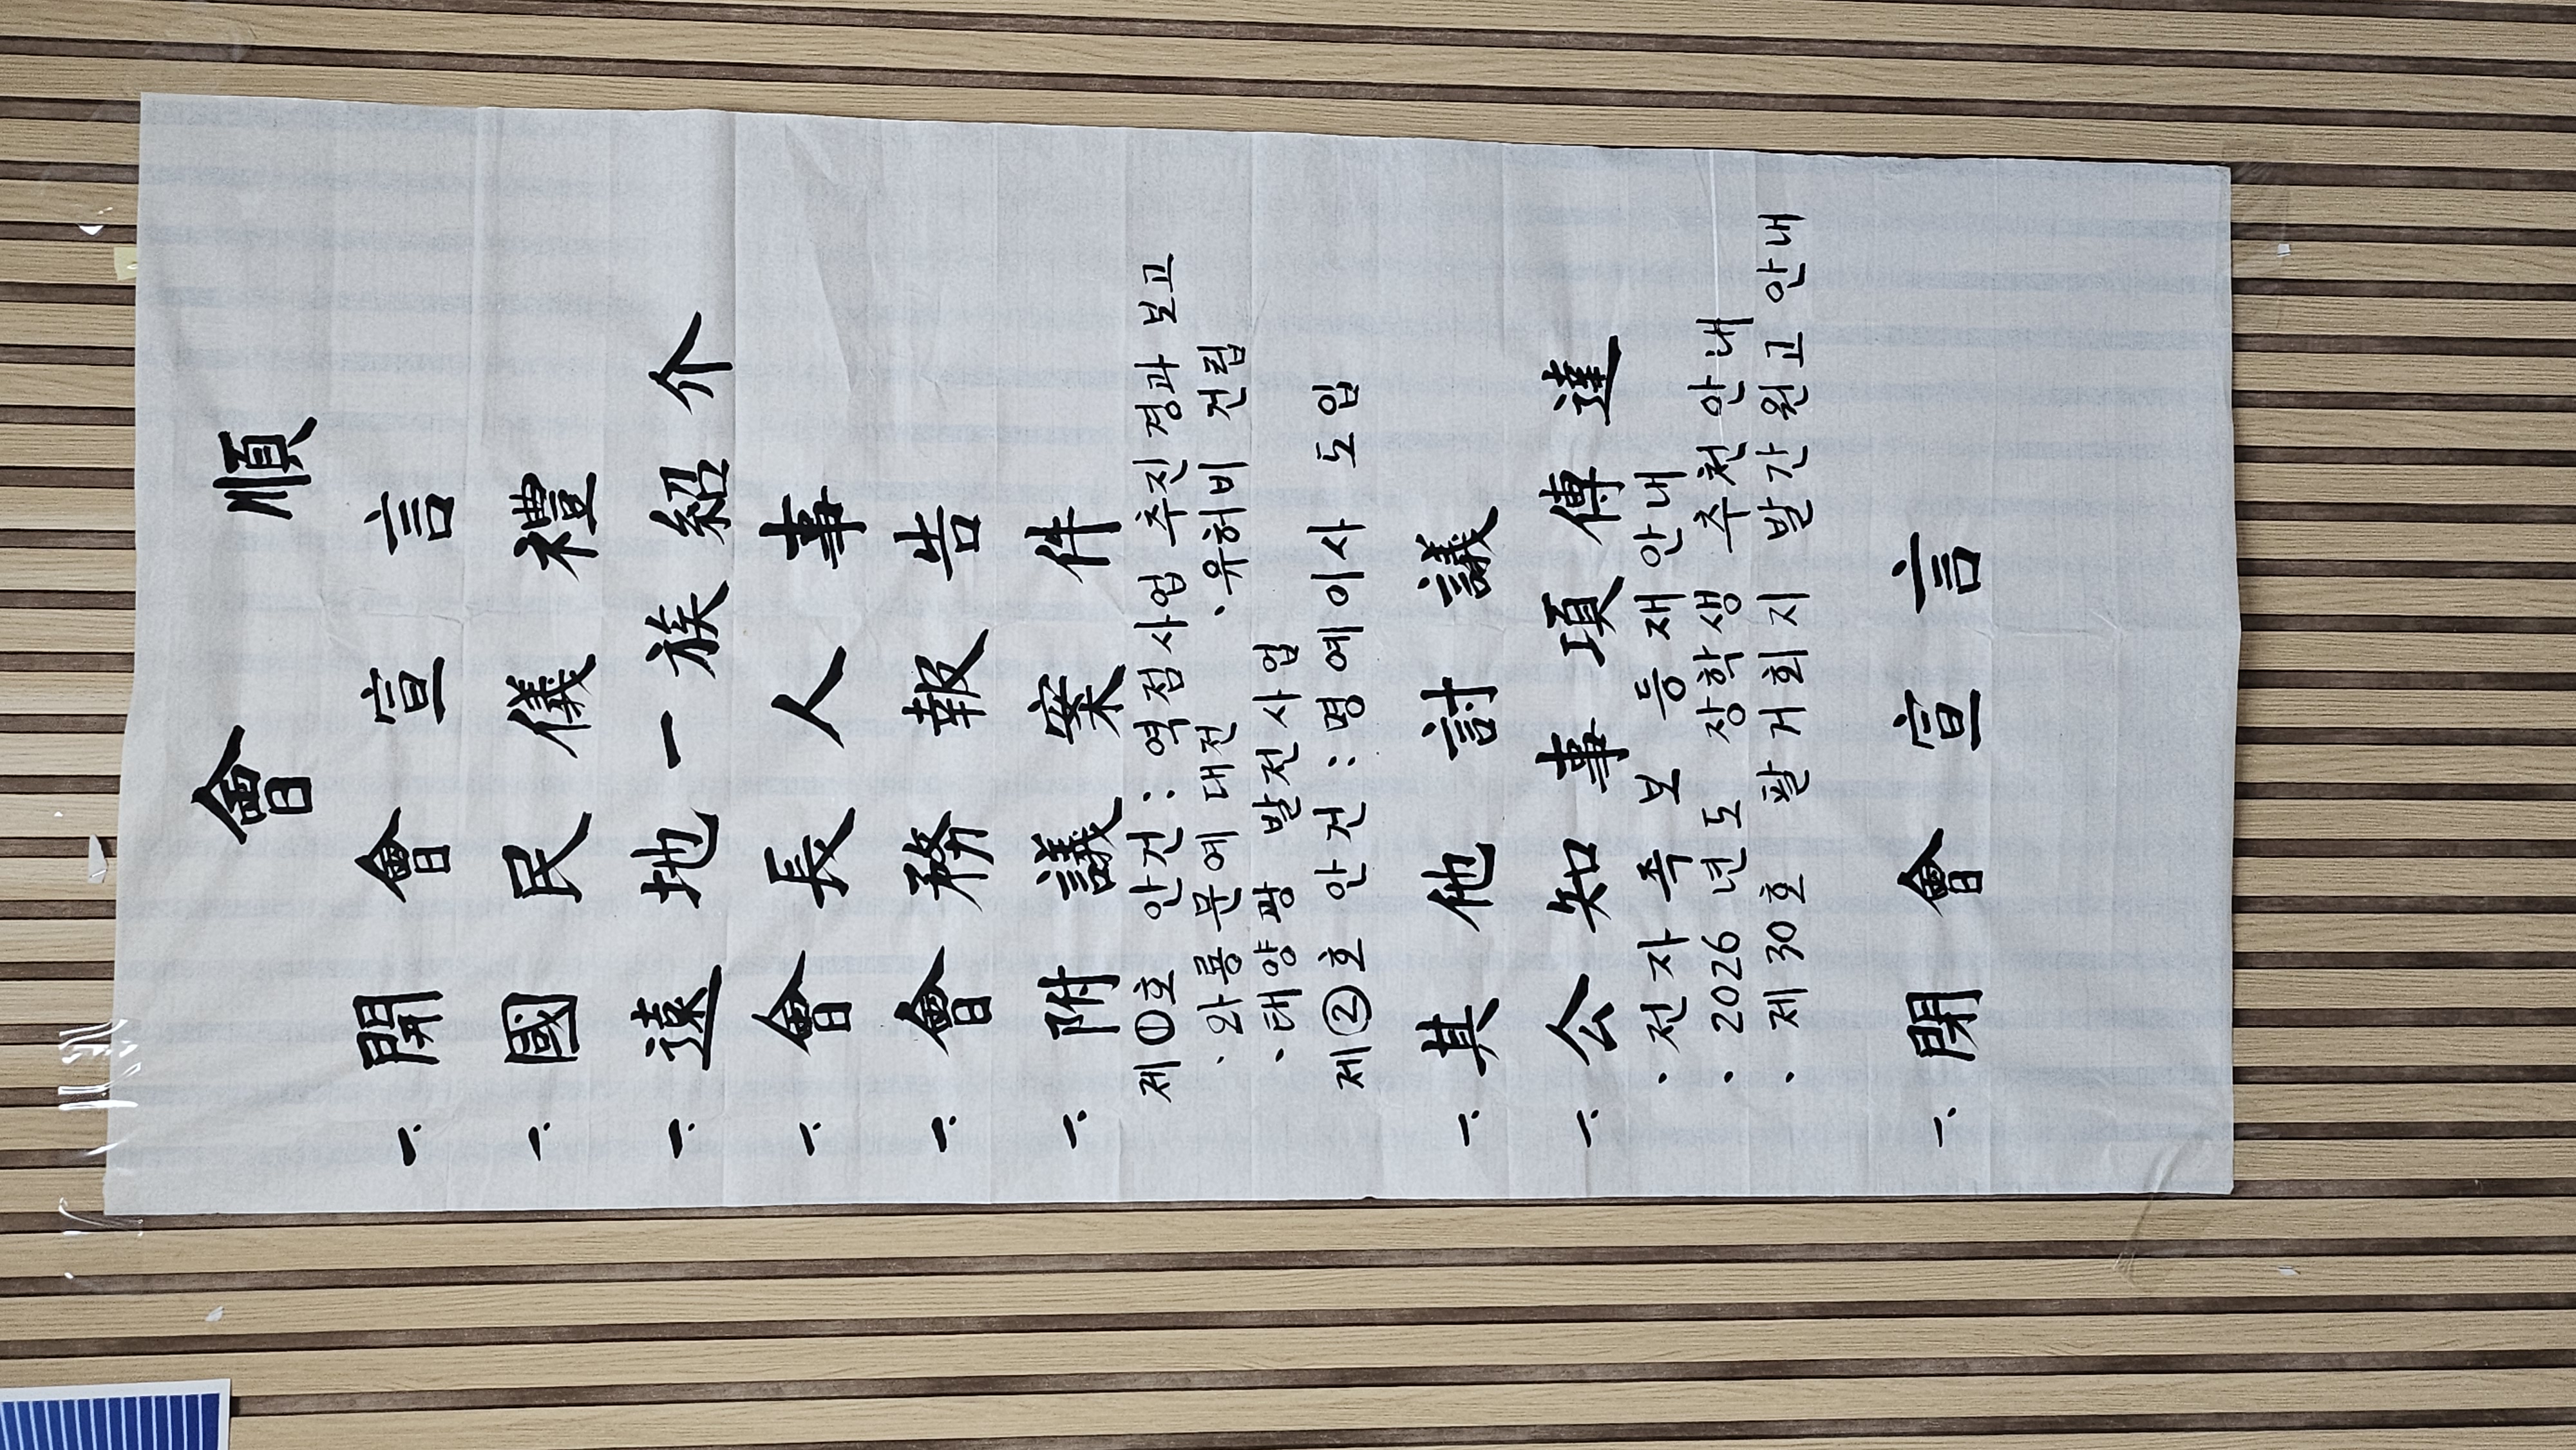 會 順
一. 開 會 宣 言
一. 國 民 儀 禮
一. 遠 地 一 族 紹 介
一. 會 長 人 事
一. 會 務 報 告
一. 附 議 案 件
제①호 안건: 역점사업 추진 경과 보고
、와룡문예대전 、유허비 건립
、태양광 발전사업
제②호 안건: 명예이사 도입
一. 其 他 討 議
一. 公 知 事 項 傳 達
· 전자족보 등재안내
· 2026년도 장학생 추천안내
· 제30호 팔거회지 발간원고 안내
一. 閉 會 宣 言